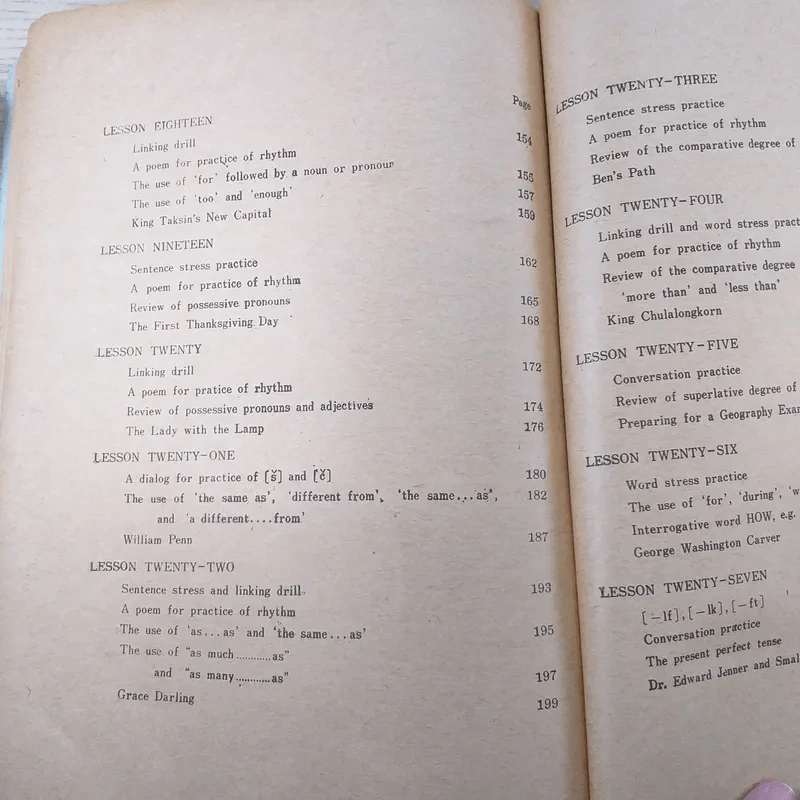 Page
LESSON EIGHTEEN
Linking drill 154
A poem for practice of rhythm
The use of 'for' followed by a noun or pronoun 155
The use of 'too' and 'enough' 157
King Taksin's New Capital 159
LESSON NINETEEN
Sentence stress practice 162
A poem for practice of rhythm
Review of possessive pronouns 165
The First Thanksgiving Day 168
LESSON TWENTY
Linking drill 172
A poem for pratice of rhythm
Review of possessive pronouns and adjectives 174
The Lady with the Lamp 176
LESSON TWENTY-ONE
A dialog for practice of [š] and [č] 180
The use of 'the same as', 'different from', 'the same...as', 182
and 'a different....from'
William Penn 187
LESSON TWENTY-TWO
Sentence stress and linking drill 193
A poem for practice of rhythm
The use of 'as...as' and 'the same...as' 195
The use of "as much............as"
and "as many............as" 197
Grace Darling 199
LESSON TWENTY-THREE
Sentence stress practice
A poem for practice of rhythm
Review of the comparative degree of
Ben's Path
LESSON TWENTY-FOUR
Linking drill and word stress pract
A poem for practice of rhythm
Review of the comparative degree
'more than' and 'less than'
King Chulalongkorn
LESSON TWENTY-FIVE
Conversation practice
Review of superlative degree of
Preparing for a Geography Exa
LESSON TWENTY-SIX
Word stress practice
The use of 'for', 'during', 'w
Interrogative word HOW, e.g.
George Washington Carver
LESSON TWENTY-SEVEN
[-lf], [-lk], [-ft]
Conversation practice
The present perfect tense
Dr. Edward Jenner and Smal